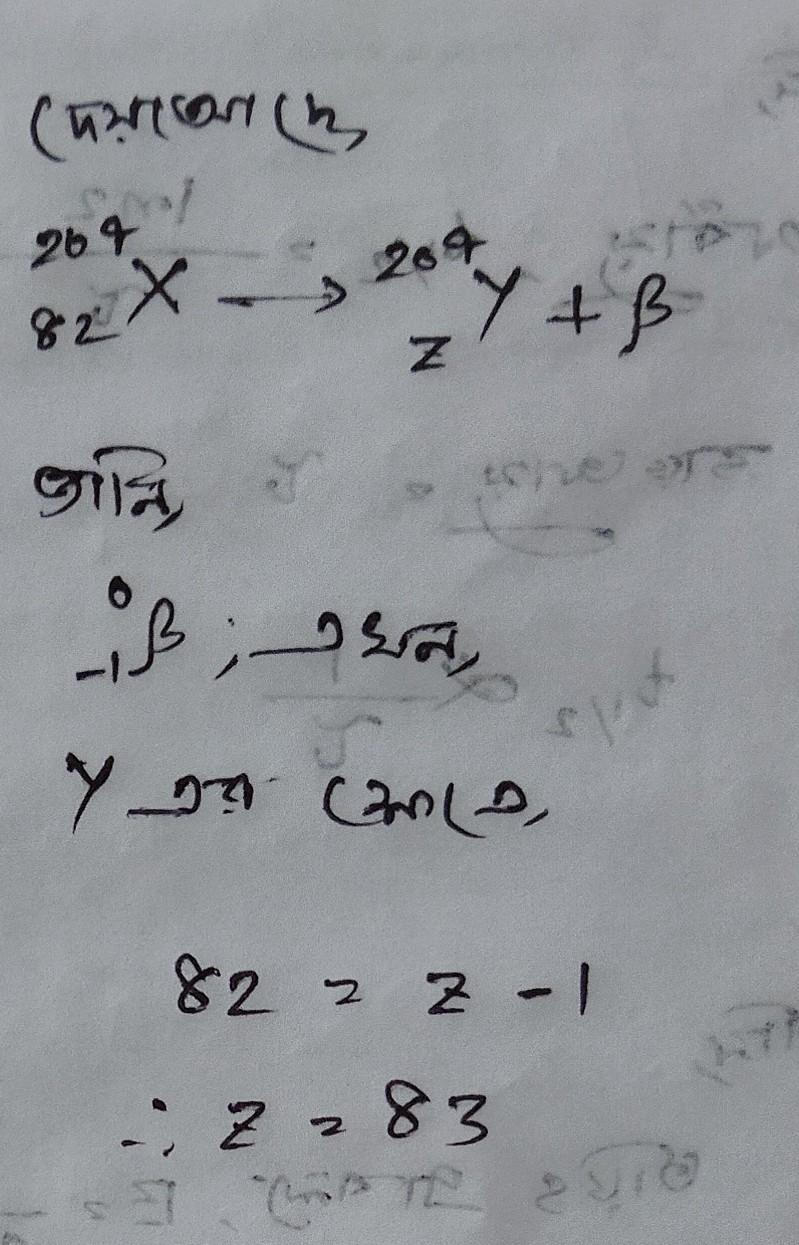 দেয়াআছে,
²⁰⁴₈₂X → ²⁰⁴_ZY + β
জানি,
⁰₋₁β ; এখন,
Y এর ক্ষেত্রে,
82 = Z - 1
∴ Z = 83